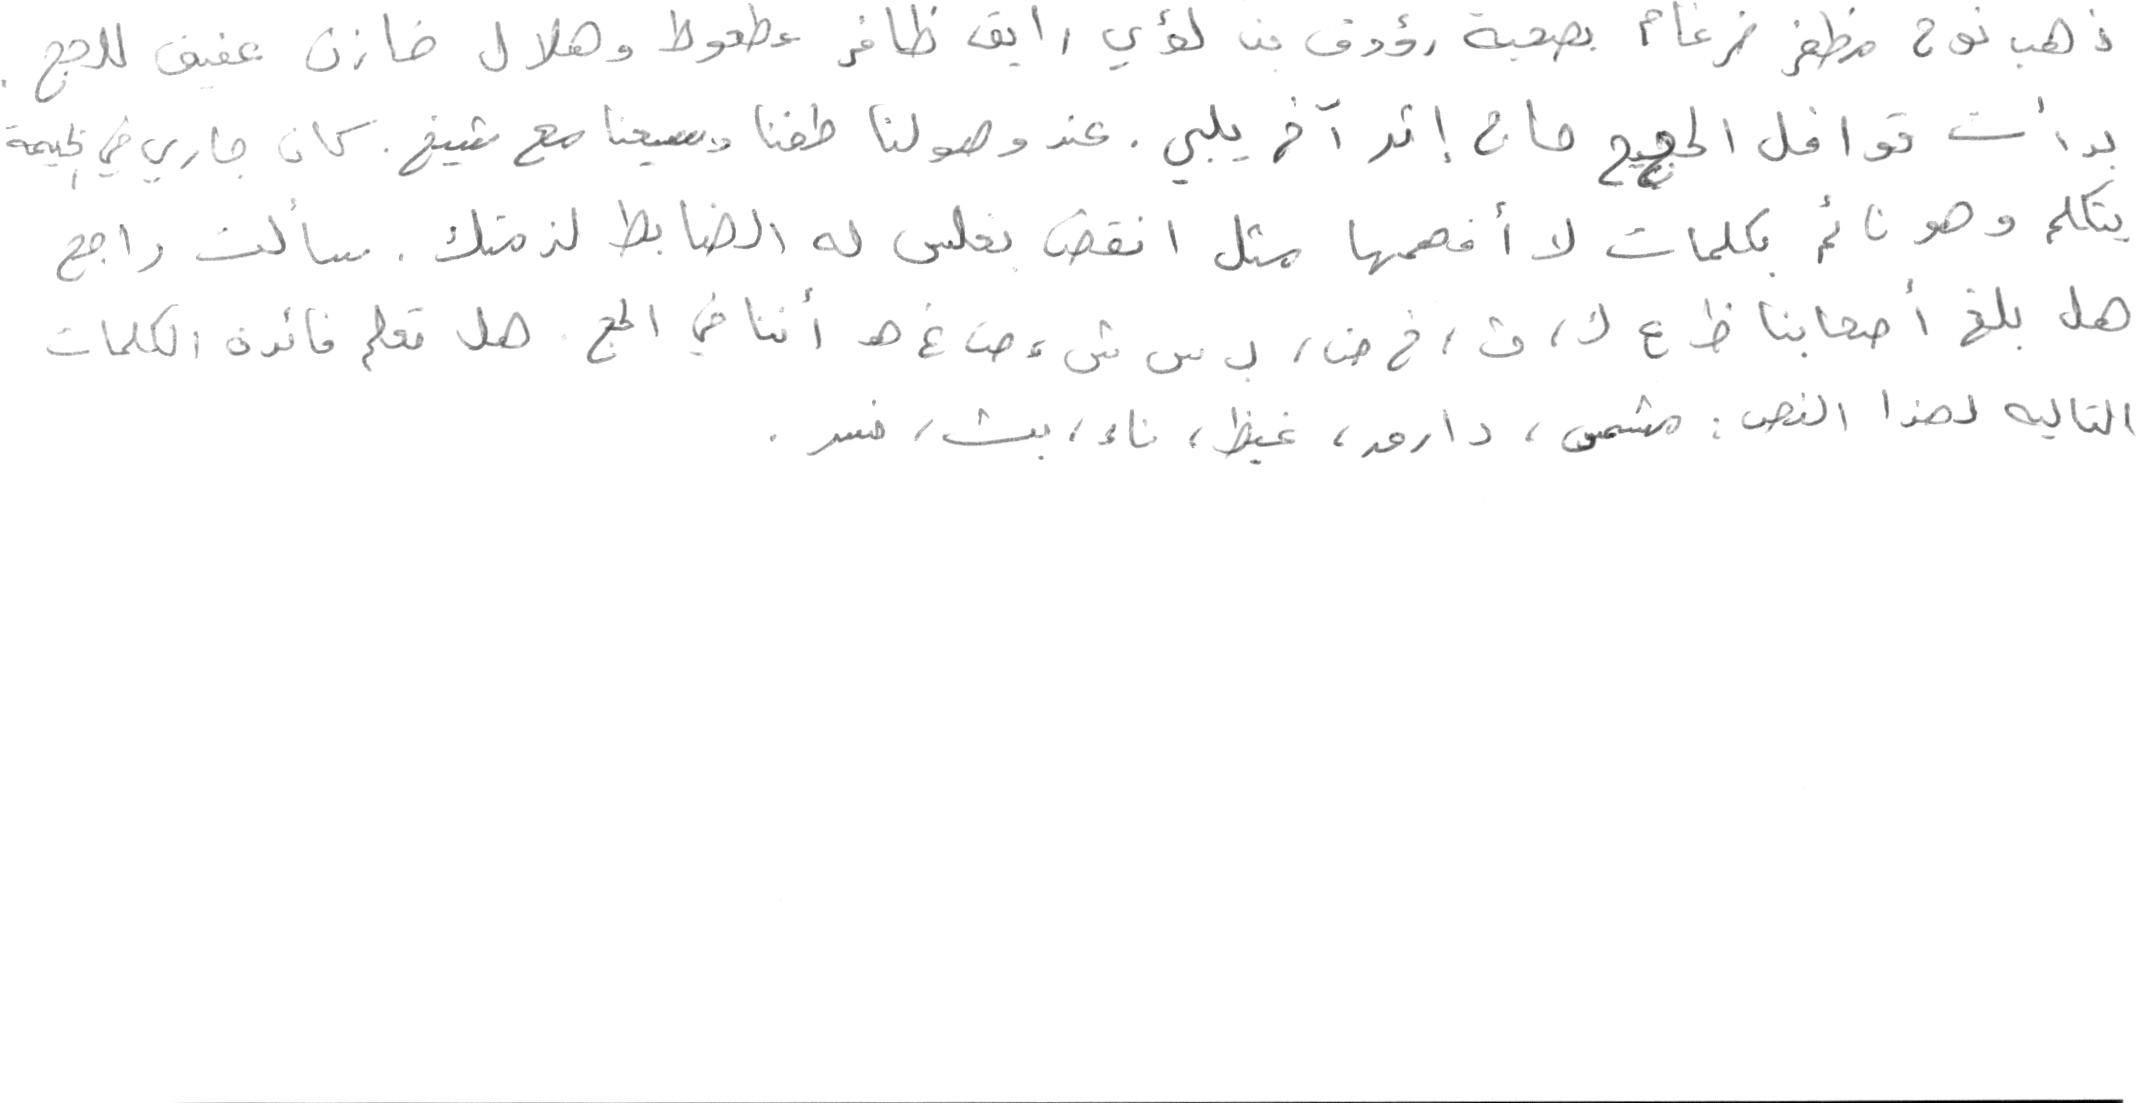 ذهب نوح مظفر ضرغام بصحبة رؤوف بن لؤي رايق ظافر عطعوط وهلال خازن عفيف للحج .
بدأت قوافل الحجيج حاج إثر آخر يلبي . عند وصولنا طفنا وسعينا مع شفيع . كان جاري في الخيمة
يتكلم وهو نائم بكلمات لا أفهمها مثل انقض بغلس له الضابط لذمتك . سألت راجح
هل بلغ أصحابنا ظ ع ك ، ث ، خ ض ، ب س ش ء ص غ هـ أننا في الحج . هل تعلم فائدة الكلمات
التاليه لهذا النص : مشمس ، دارهـ ، غيظ ، ناء ، بث ، فسر .